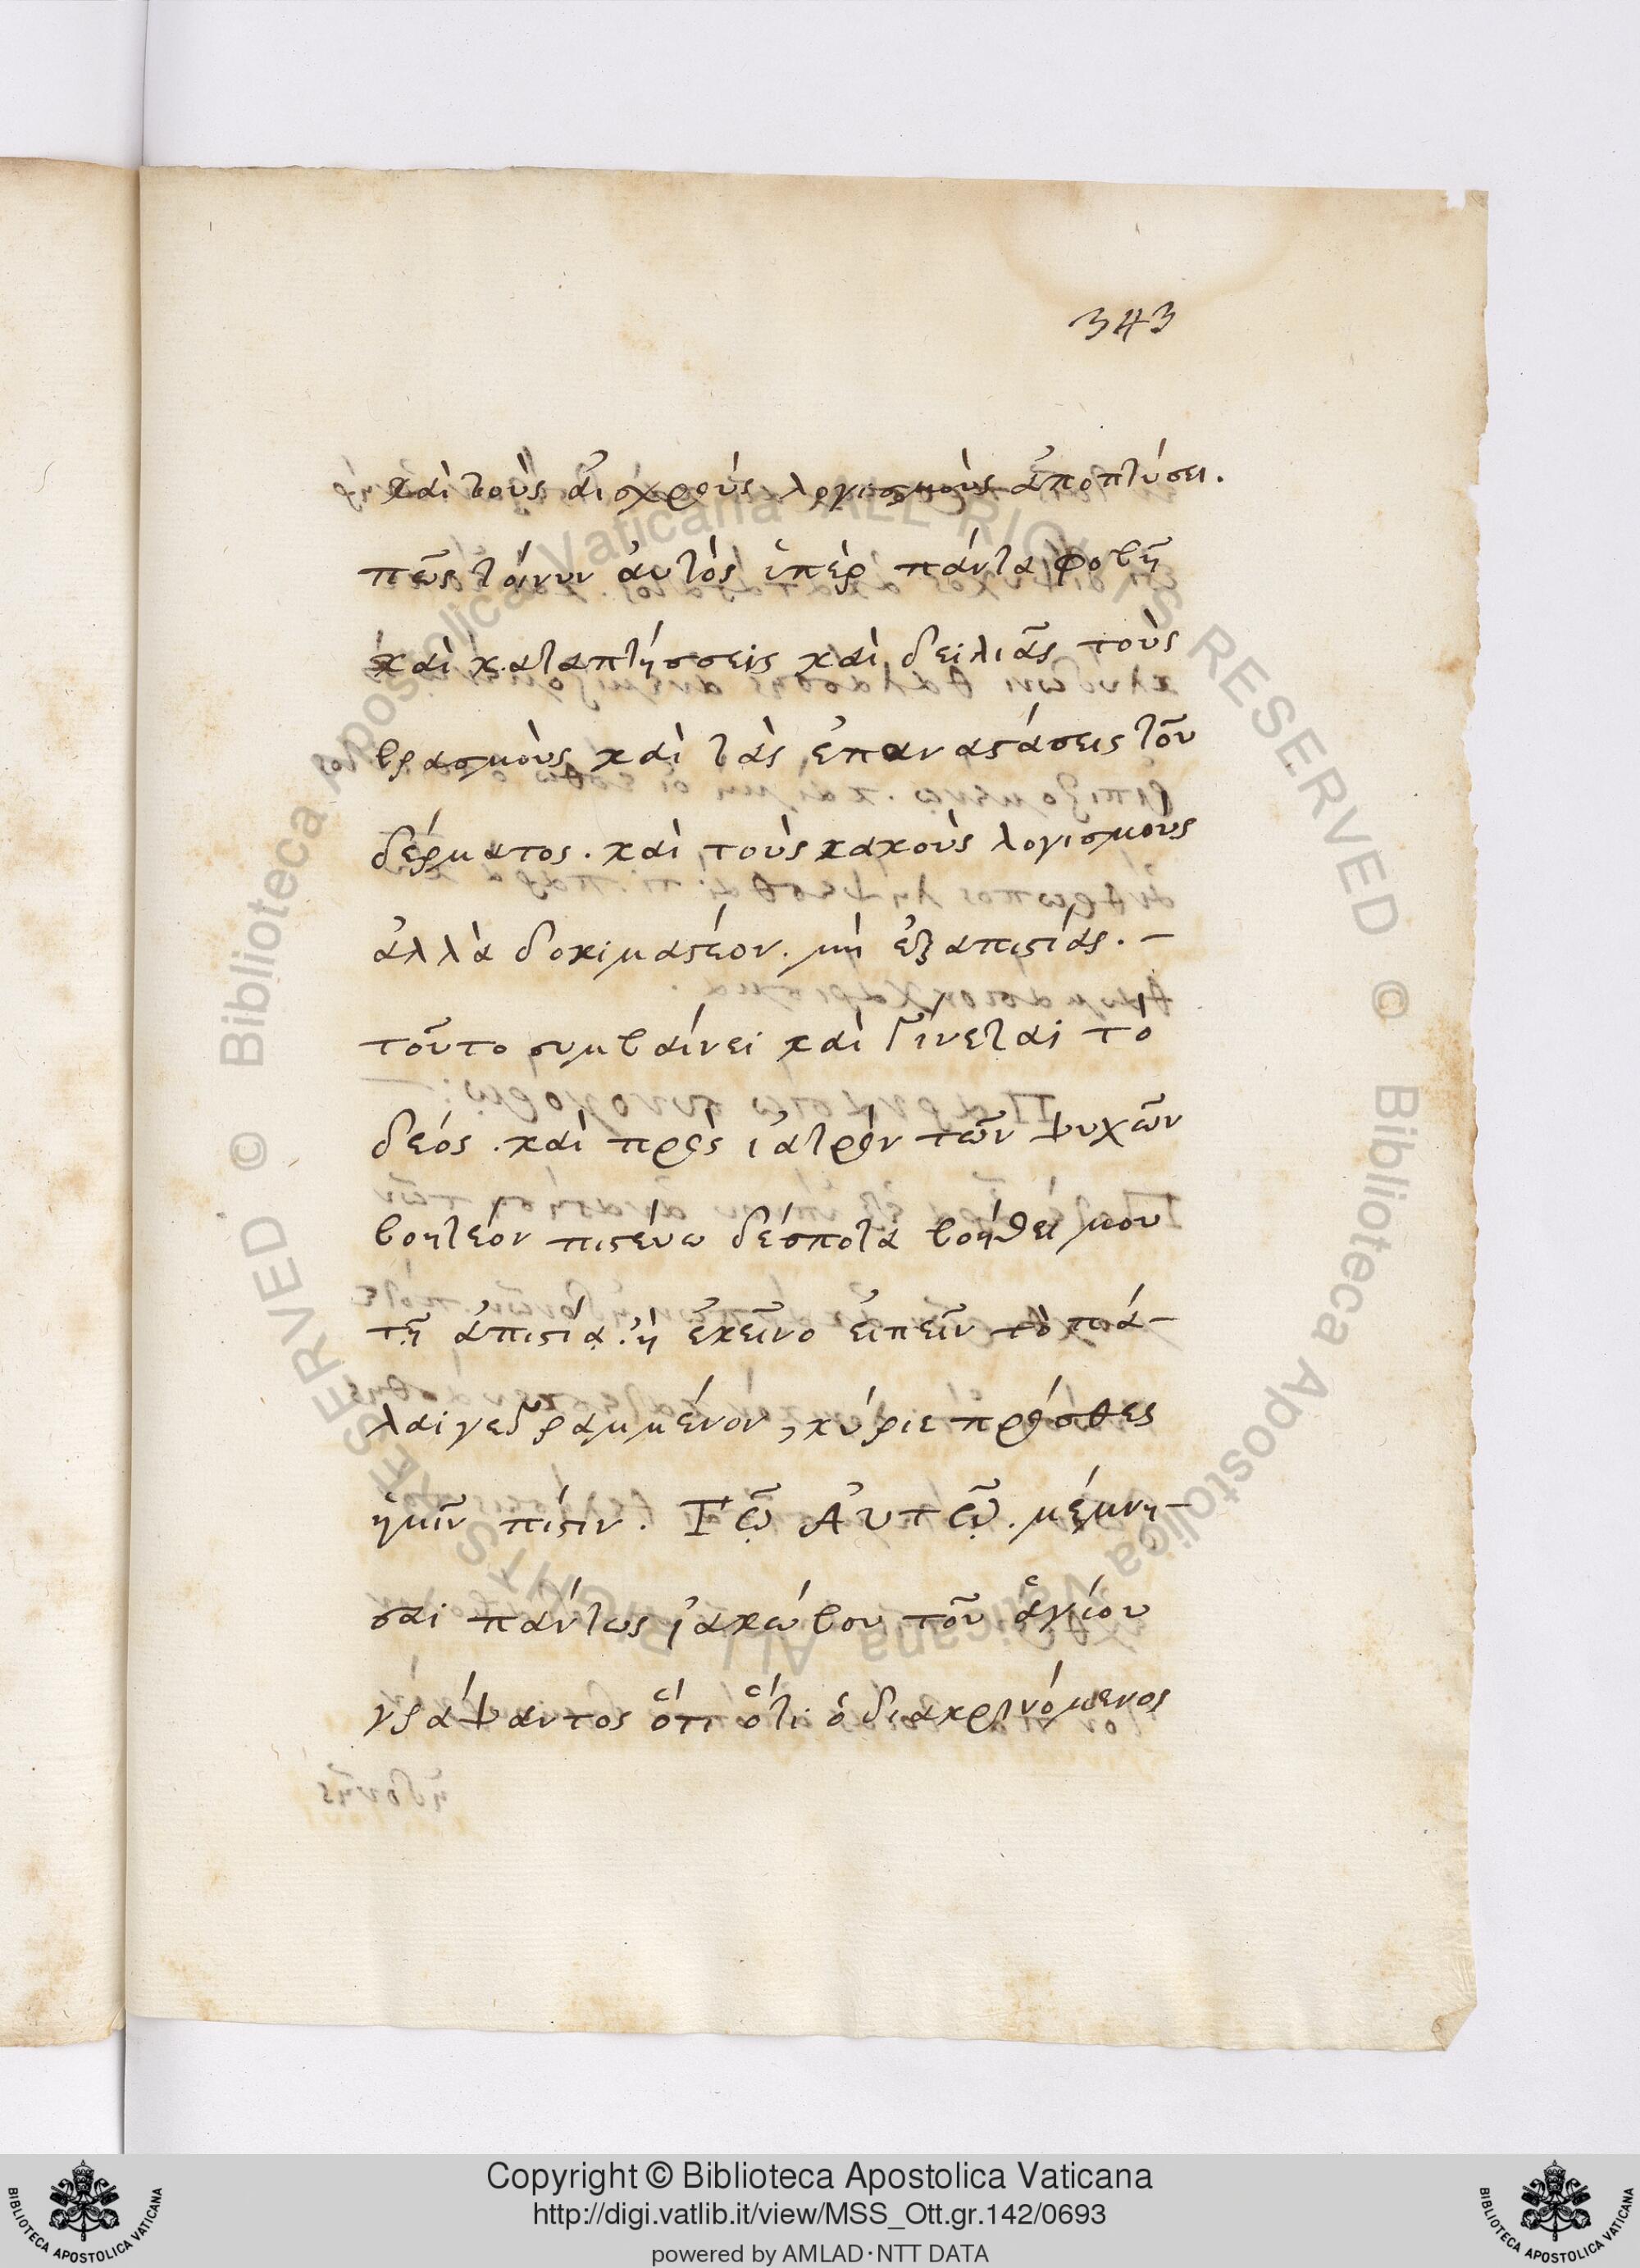 343
καὶ τοὺς ἀισχροὺς λογισμοὺς ἀποπτύσει.
πῶς τοίνυν ἀυτὸς ὑπὲρ πάντα φοβῆ
καὶ καταπτήσσεις καὶ δειλιᾶς τοὺς
βρασμοὺς καὶ τὰς ἐπαναστάσεις τοῦ
δέρματος. καὶ τοὺς κακοὺς λογισμους
ἀλλὰ δοκιμαστέον. μὴ ἐξ απιστίας. –
τοῦτο συμβάινει καὶ γίνεται τὸ
δεός. καὶ πρὸς ἰατρὸν τῶν ψυχῶν
βοητέον πιστέυω δέσποτα βοήθει μου
τῇ ἀπιστίᾳ. ἢ ἐκεῖνο ἐιπεῖν τὸ πά–
λαι γεγραμμένον, κύριε πρόσθες
ἡμῖν πίστιν. Τῷ Αὐτῷ. μέμνη–
σαι πάντως ἰακώβου τοῦ ἁγίου
γράψαντος ὅτι ὅτι ὁ διακρινόμενος
Copyright © Biblioteca Apostolica Vaticana
http://digi.vatlib.it/view/MSS_Ott.gr.142/0693
powered by AMLAD·NTT DATA
BIBLIOTECA APOSTOLICA VATICANA
BIBLIOTECA APOSTOLICA VATICANA
© Biblioteca Apostolica Vaticana ALL RIGHTS RESERVED
© Biblioteca Apostolica Vaticana ALL RIGHTS RESERVED